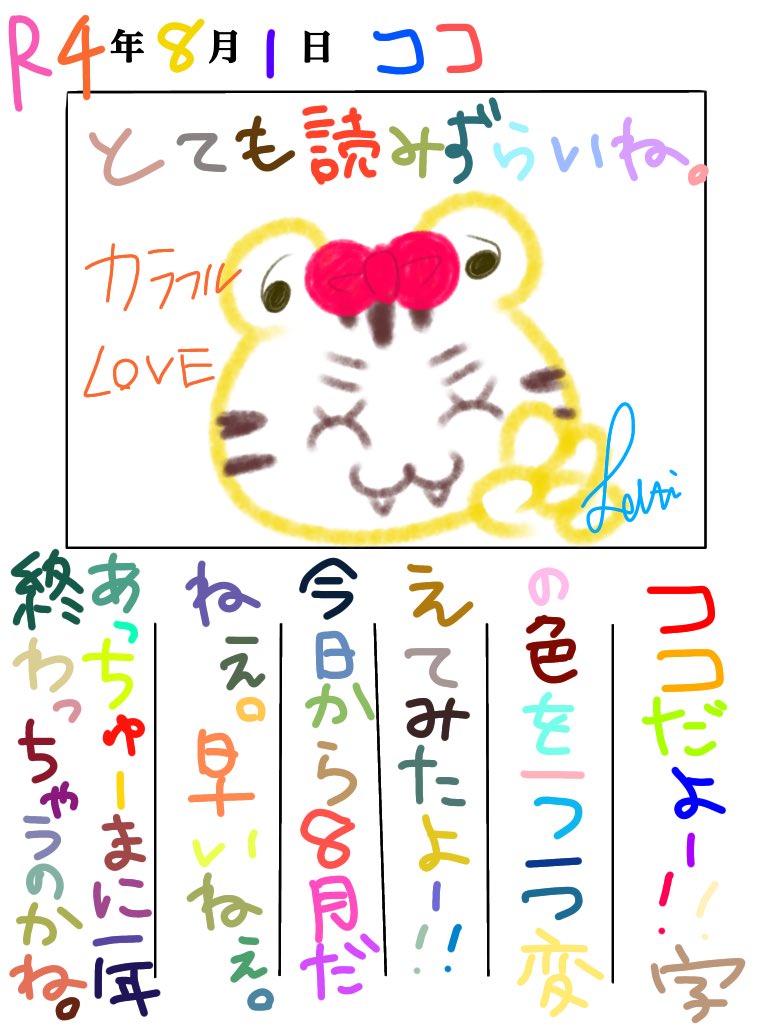 R4年8月1日 ココ
とても読みずらいね。
カラフル
LOVE
ココだよー!!字
の色を一つ一つ変
えてみたよー!!
今日から8月だ
ねぇ。早いねぇ。
あっちゅーまに一年
終わっちゃうのかね。